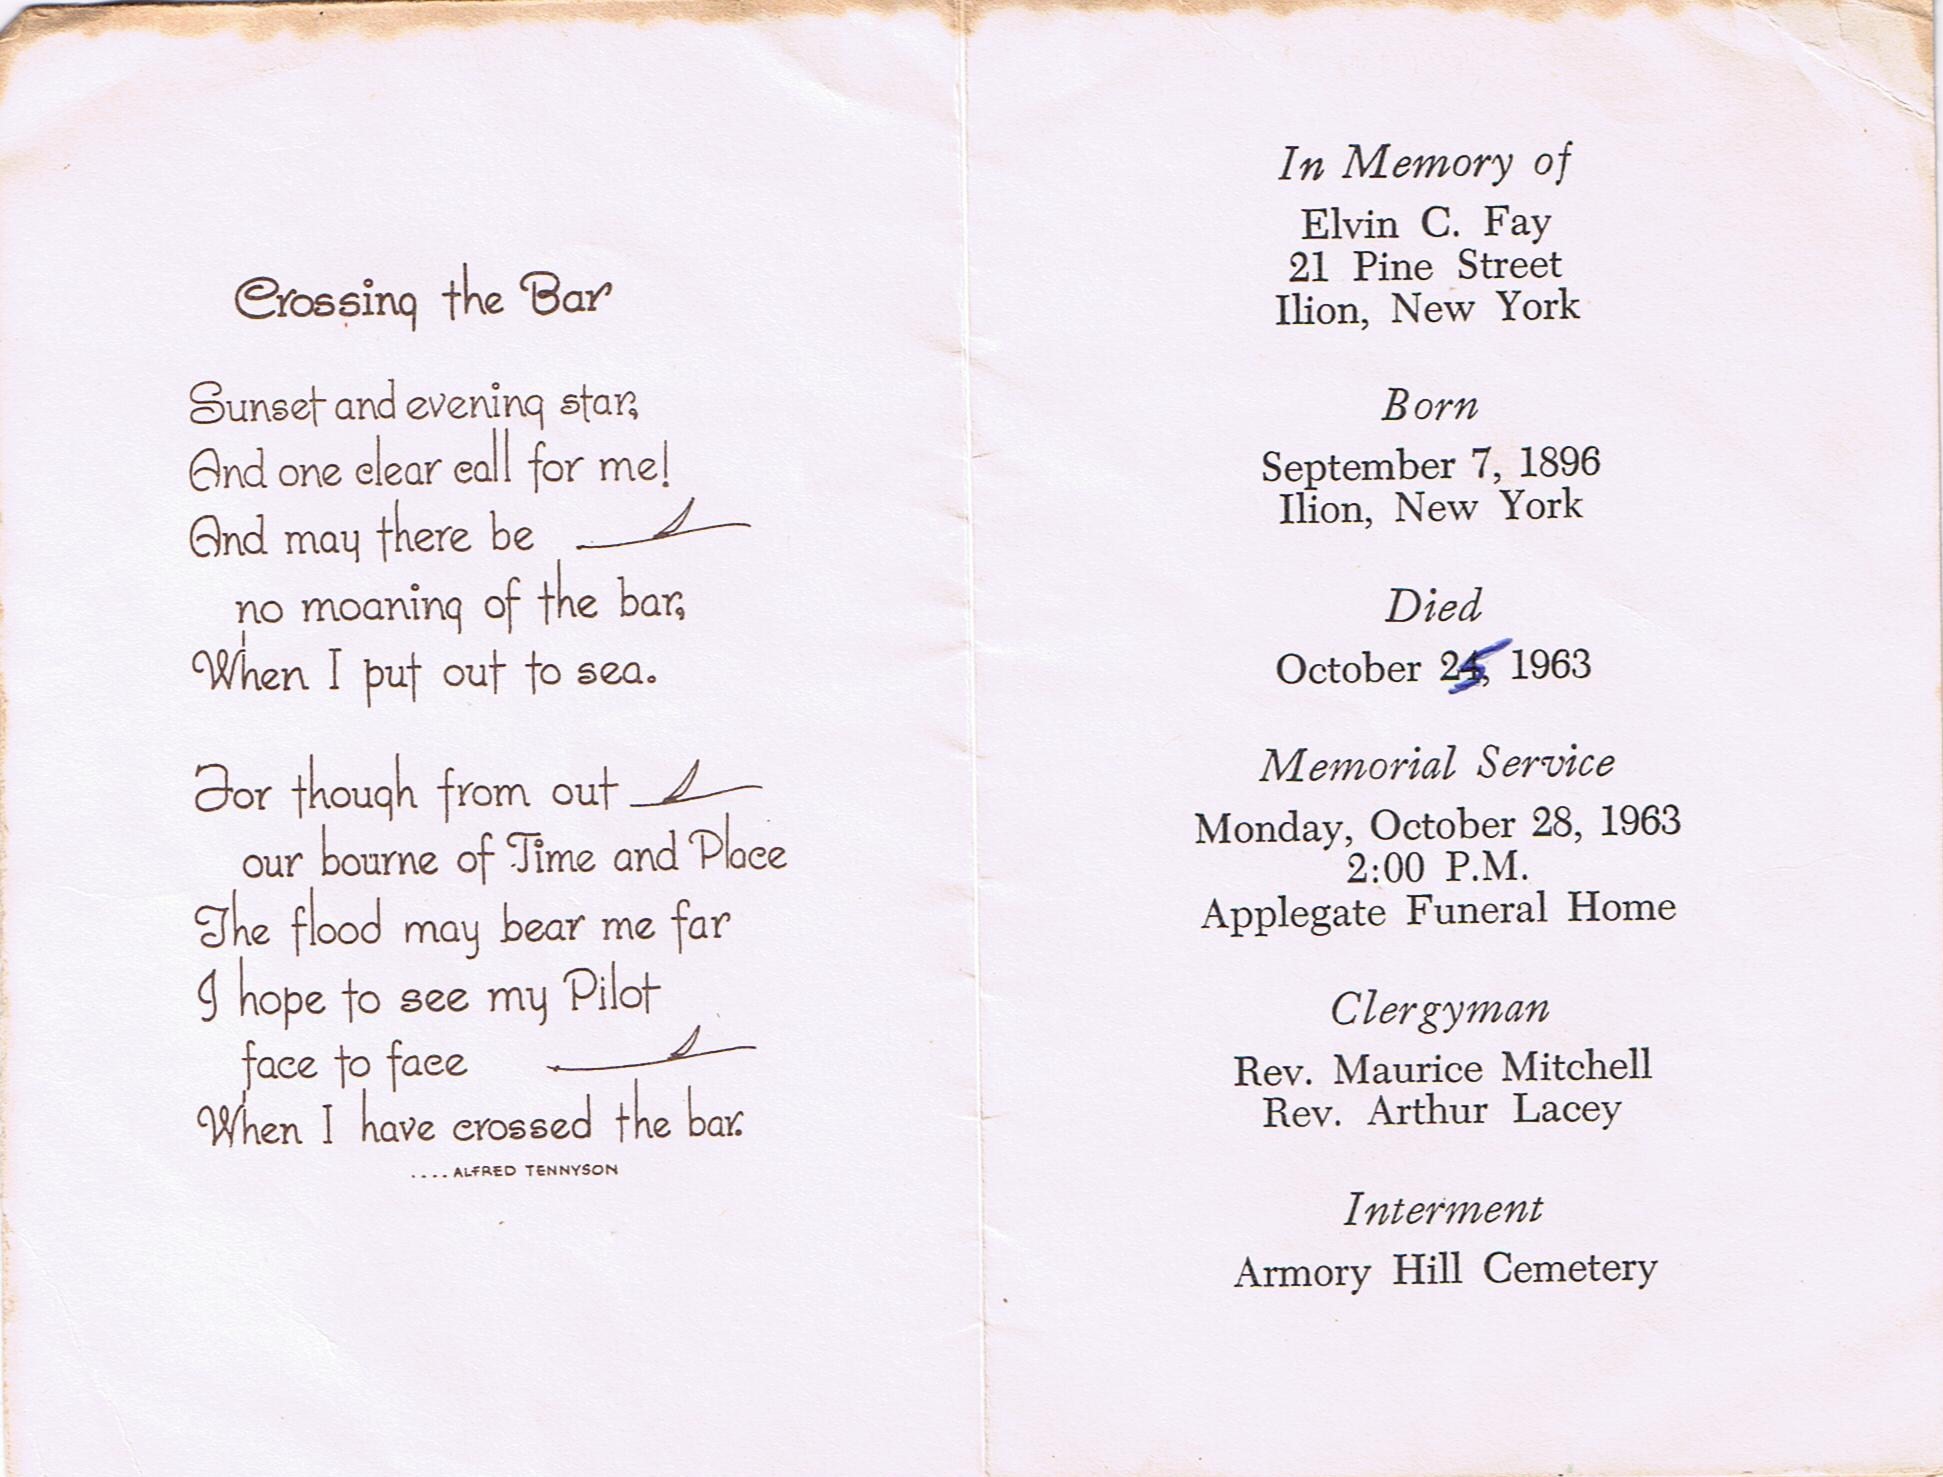 Crossing the Bar
Sunset and evening star,
And one clear call for me!
And may there be
no moaning of the bar,
When I put out to sea.
For though from out
our bourne of Time and Place
The flood may bear me far
I hope to see my Pilot
face to face
When I have crossed the bar.
....ALFRED TENNYSON
In Memory of
Elvin C. Fay
21 Pine Street
Ilion, New York
Born
September 7, 1896
Ilion, New York
Died
October 25, 1963
Memorial Service
Monday, October 28, 1963
2:00 P.M.
Applegate Funeral Home
Clergyman
Rev. Maurice Mitchell
Rev. Arthur Lacey
Interment
Armory Hill Cemetery